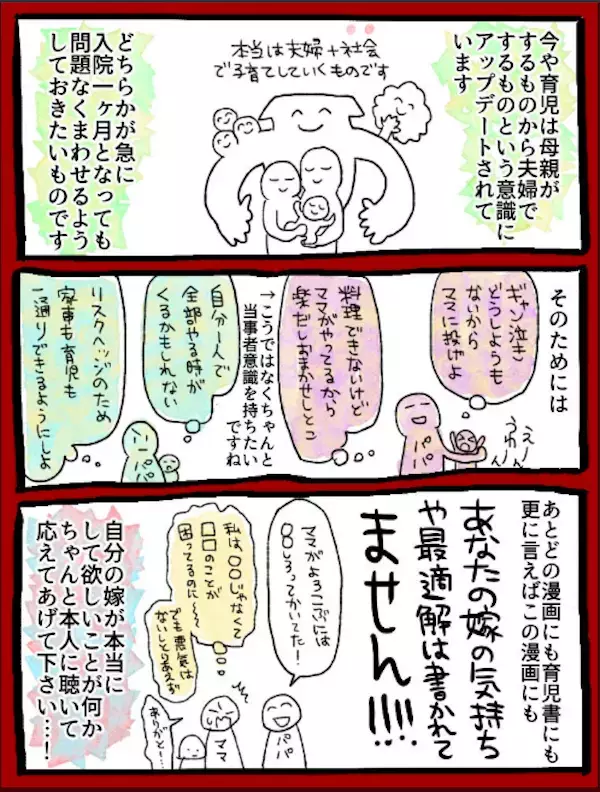 今や育児は母親が
するものから夫婦で
するものという意識に
アップデートされて
います
本当は夫婦+社会
で子育てしていくものです
どちらかが急に
入院一ヶ月となっても
問題なくまわせるよう
しておきたいものです
そのためには
ギャン泣き
どうしようも
ないから
ママに投げよ
うわーん
えーん
パパ
料理できないけど
ママがやってるから
楽だしおまかせしとこ
→こうではなくちゃんと
当事者意識を持ちたい
ですね
自分一人で
全部やる時が
くるかもしれない
リスクヘッジのため
家事も育児も
一通りできるようにしよ
パパ
あとどの漫画にも育児書にも
更に言えばこの漫画にも
あなたの嫁の気持ち
や最適解は書かれて
ません!!!!
ママがよろこぶには
〇〇しろってかいてた!
パパ
私は、〇〇じゃなくて
□□のことが
困ってるのに〜
でも悪気は
ないしとりあえず
ママ
ありがとー…
自分の嫁が本当に
して欲しいことが何か
ちゃんと本人に聴いて
応えてあげて下さい…!